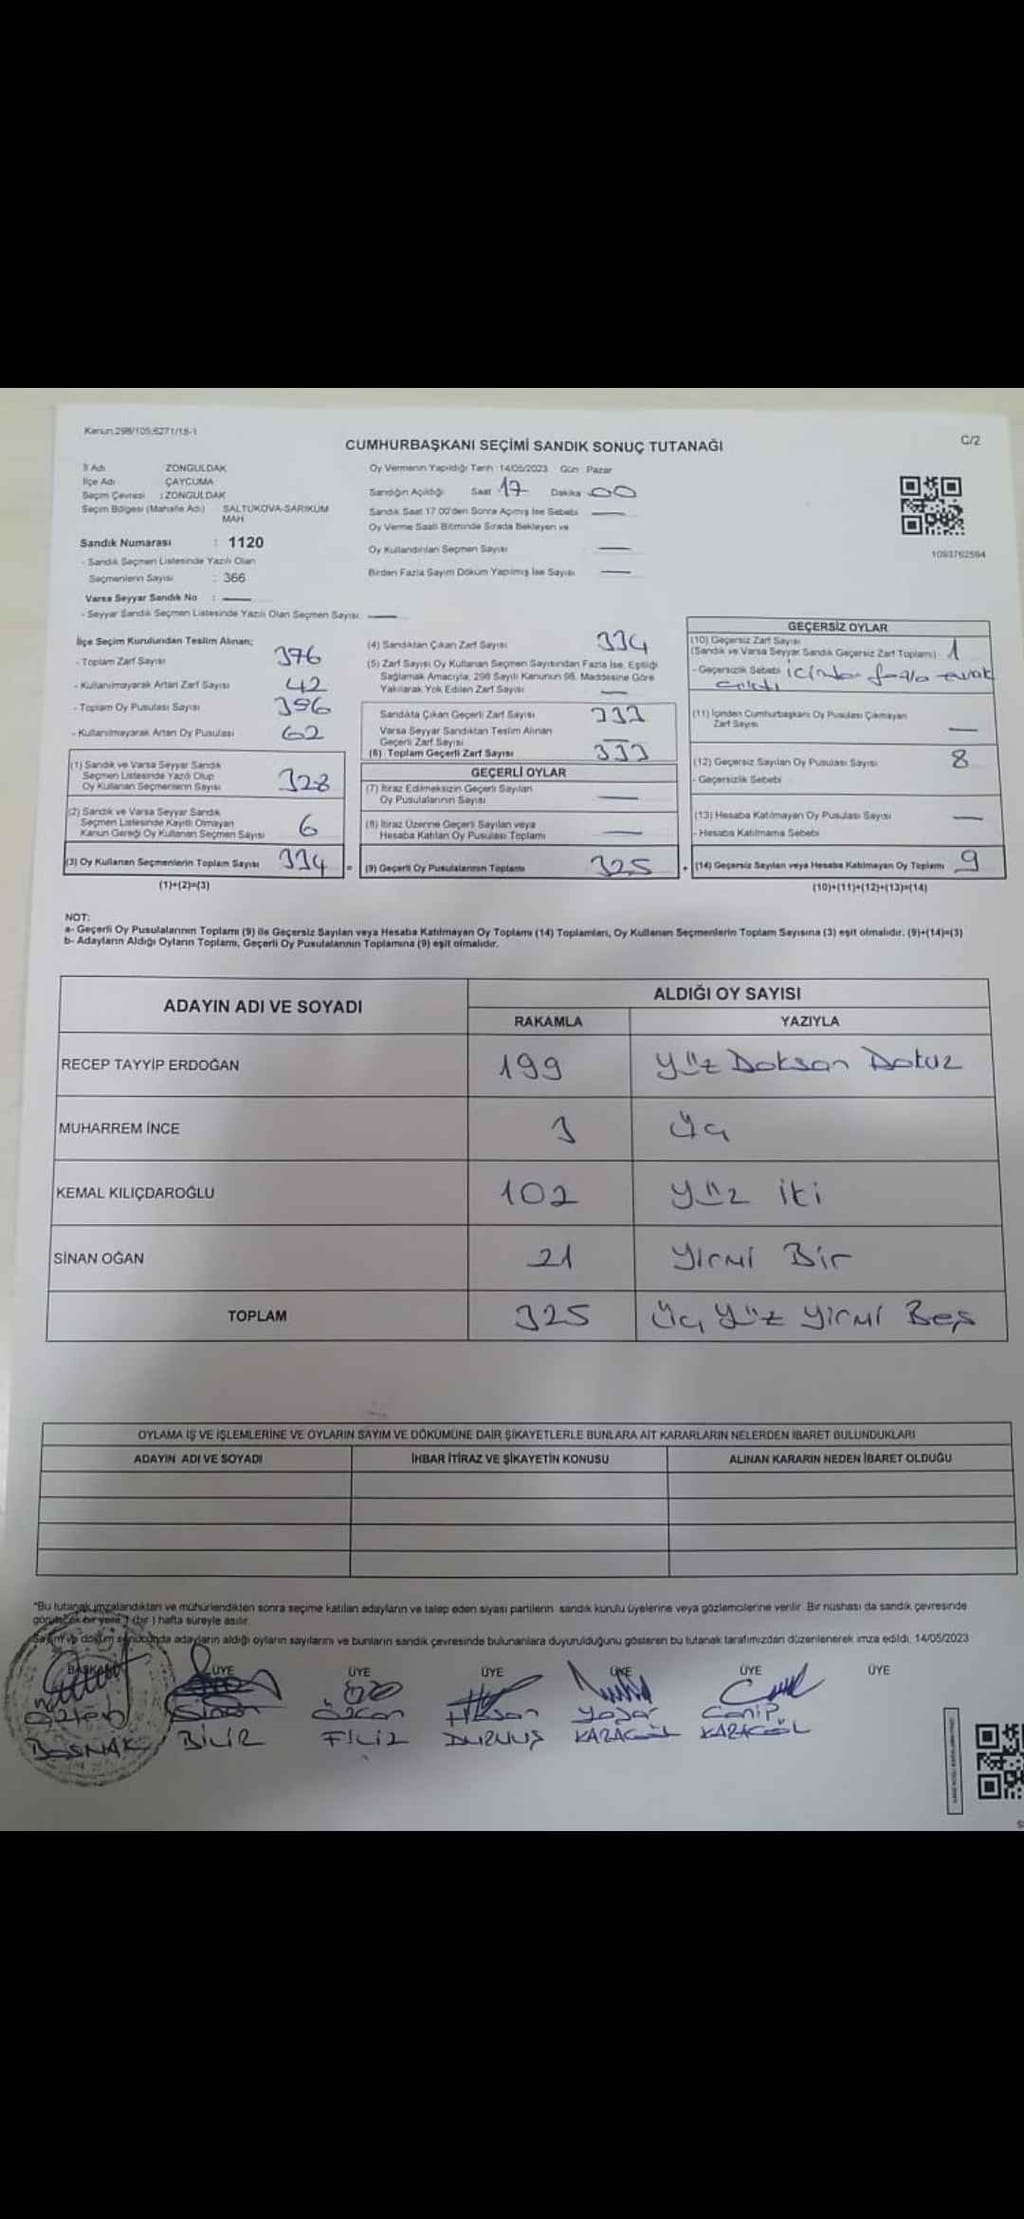 Kanun:298/105;6271/18-1
CUMHURBAŞKANI SEÇİMİ SANDIK SONUÇ TUTANAĞI
C/2
İl Adı ZONGULDAK
İlçe Adı ÇAYCUMA
Seçim Çevresi : ZONGULDAK
Seçim Bölgesi (Mahalle Adı) SALTUKOVA-SARIKUM
MAH
Sandık Numarası : 1120
- Sandık Seçmen Listesinde Yazılı Olan
Seçmenlerin Sayısı : 366
Varsa Seyyar Sandık No :
- Seyyar Sandık Seçmen Listesinde Yazılı Olan Seçmen Sayısı:
Oy Vermenin Yapıldığı Tarih :14/05/2023 Gün : Pazar
Sandığın Açıldığı Saat 17 Dakika : 00
Sandık Saat 17:00'den Sonra Açımış İse Sebebi
Oy Verme Saati Bitiminde Sırada Bekleyen ve
Oy Kullandırılan Seçmen Sayısı
Birden Fazla Sayım Döküm Yapılmış İse Sayısı
1093762594
İlçe Seçim Kurulundan Teslim Alınan;
- Toplam Zarf Sayısı 376
- Kullanılmayarak Artan Zarf Sayısı 42
- Toplam Oy Pusulası Sayısı 396
- Kullanılmayarak Artan Oy Pusulası 62
(1) Sandık ve Varsa Seyyar Sandık
Seçmen Listesinde Yazılı Olup
Oy Kullanan Seçmenlerin Sayısı 328
(2) Sandık ve Varsa Seyyar Sandık
Seçmen Listesinde Kayıtlı Olmayan
Kanun Gereği Oy Kullanan Seçmen Sayısı 6
(3) Oy Kullanan Seçmenlerin Toplam Sayısı 334 =
(1)+(2)=(3)
(4) Sandıktan Çıkan Zarf Sayısı 334
(5) Zarf Sayısı Oy Kullanan Seçmen Sayısından Fazla İse, Eşitliği
Sağlamak Amacıyla, 298 Sayılı Kanunun 98. Maddesine Göre
Yakılarak Yok Edilen Zarf Sayısı
Sandıkta Çıkan Geçerli Zarf Sayısı 333
Varsa Seyyar Sandıktan Teslim Alınan
Geçerli Zarf Sayısı
(6) Toplam Geçerli Zarf Sayısı 333
GEÇERLİ OYLAR
(7) İtiraz Edilmeksizin Geçerli Sayılan
Oy Pusulalarının Sayısı
(8) İtiraz Üzerine Geçerli Sayılan veya
Hesaba Katılan Oy Pusulası Toplamı
(9) Geçerli Oy Pusulalarının Toplamı 325 +
GEÇERSİZ OYLAR
(10) Geçersiz Zarf Sayısı
(Sandık ve Varsa Seyyar Sandık Geçersiz Zarf Toplamı) : 1
- Geçersizlik Sebebi içinden fazla evrak
çıktı
(11) İçinden Cumhurbaşkanı Oy Pusulası Çıkmayan
Zarf Sayısı
(12) Geçersiz Sayılan Oy Pusulası Sayısı 8
- Geçersizlik Sebebi
(13) Hesaba Katılmayan Oy Pusulası Sayısı
- Hesaba Katılmama Sebebi
(14) Geçersiz Sayılan veya Hesaba Katılmayan Oy Toplamı 9
(10)+(11)+(12)+(13)=(14)
NOT:
a- Geçerli Oy Pusulalarının Toplamı (9) ile Geçersiz Sayılan veya Hesaba Katılmayan Oy Toplamı (14) Toplamları, Oy Kullanan Seçmenlerin Toplam Sayısına (3) eşit olmalıdır. (9)+(14)=(3)
b- Adayların Aldığı Oyların Toplamı, Geçerli Oy Pusulalarının Toplamına (9) eşit olmalıdır.
ADAYIN ADI VE SOYADI
ALDIĞI OY SAYISI
RAKAMLA YAZIYLA
RECEP TAYYİP ERDOĞAN 199 Yüz Doksan Dokuz
MUHARREM İNCE 3 Üç
KEMAL KILIÇDAROĞLU 102 Yüz iki
SİNAN OĞAN 21 Yirmi Bir
TOPLAM 325 Üç Yüz Yirmi Beş
OYLAMA İŞ VE İŞLEMLERİNE VE OYLARIN SAYIM VE DÖKÜMÜNE DAİR ŞİKAYETLERLE BUNLARA AİT KARARLARIN NELERDEN İBARET BULUNDUKLARI
ADAYIN ADI VE SOYADI İHBAR İTİRAZ VE ŞİKAYETİN KONUSU ALINAN KARARIN NEDEN İBARET OLDUĞU
*Bu tutanak imzalandıktan ve mühürlendikten sonra seçime katılan adayların ve talep eden siyasi partilerin sandık kurulu üyelerine veya gözlemcilerine verilir. Bir nüshası da sandık çevresinde
görülecek bir yere 1 (bir) hafta süreyle asılır.
Sayım ve döküm sonucunda adayların aldığı oyların sayılarını ve bunların sandık çevresinde bulunanlara duyurulduğunu gösteren bu tutanak tarafımızdan düzenlenerek imza edildi. 14/05/2023
BAŞKAN ÜYE ÜYE ÜYE ÜYE ÜYE ÜYE
Sinan Özcan Hasan Yaşar Canip
BOSNAK BİLİR FİLİZ DURMUŞ KARAGÖL KARAGÖL